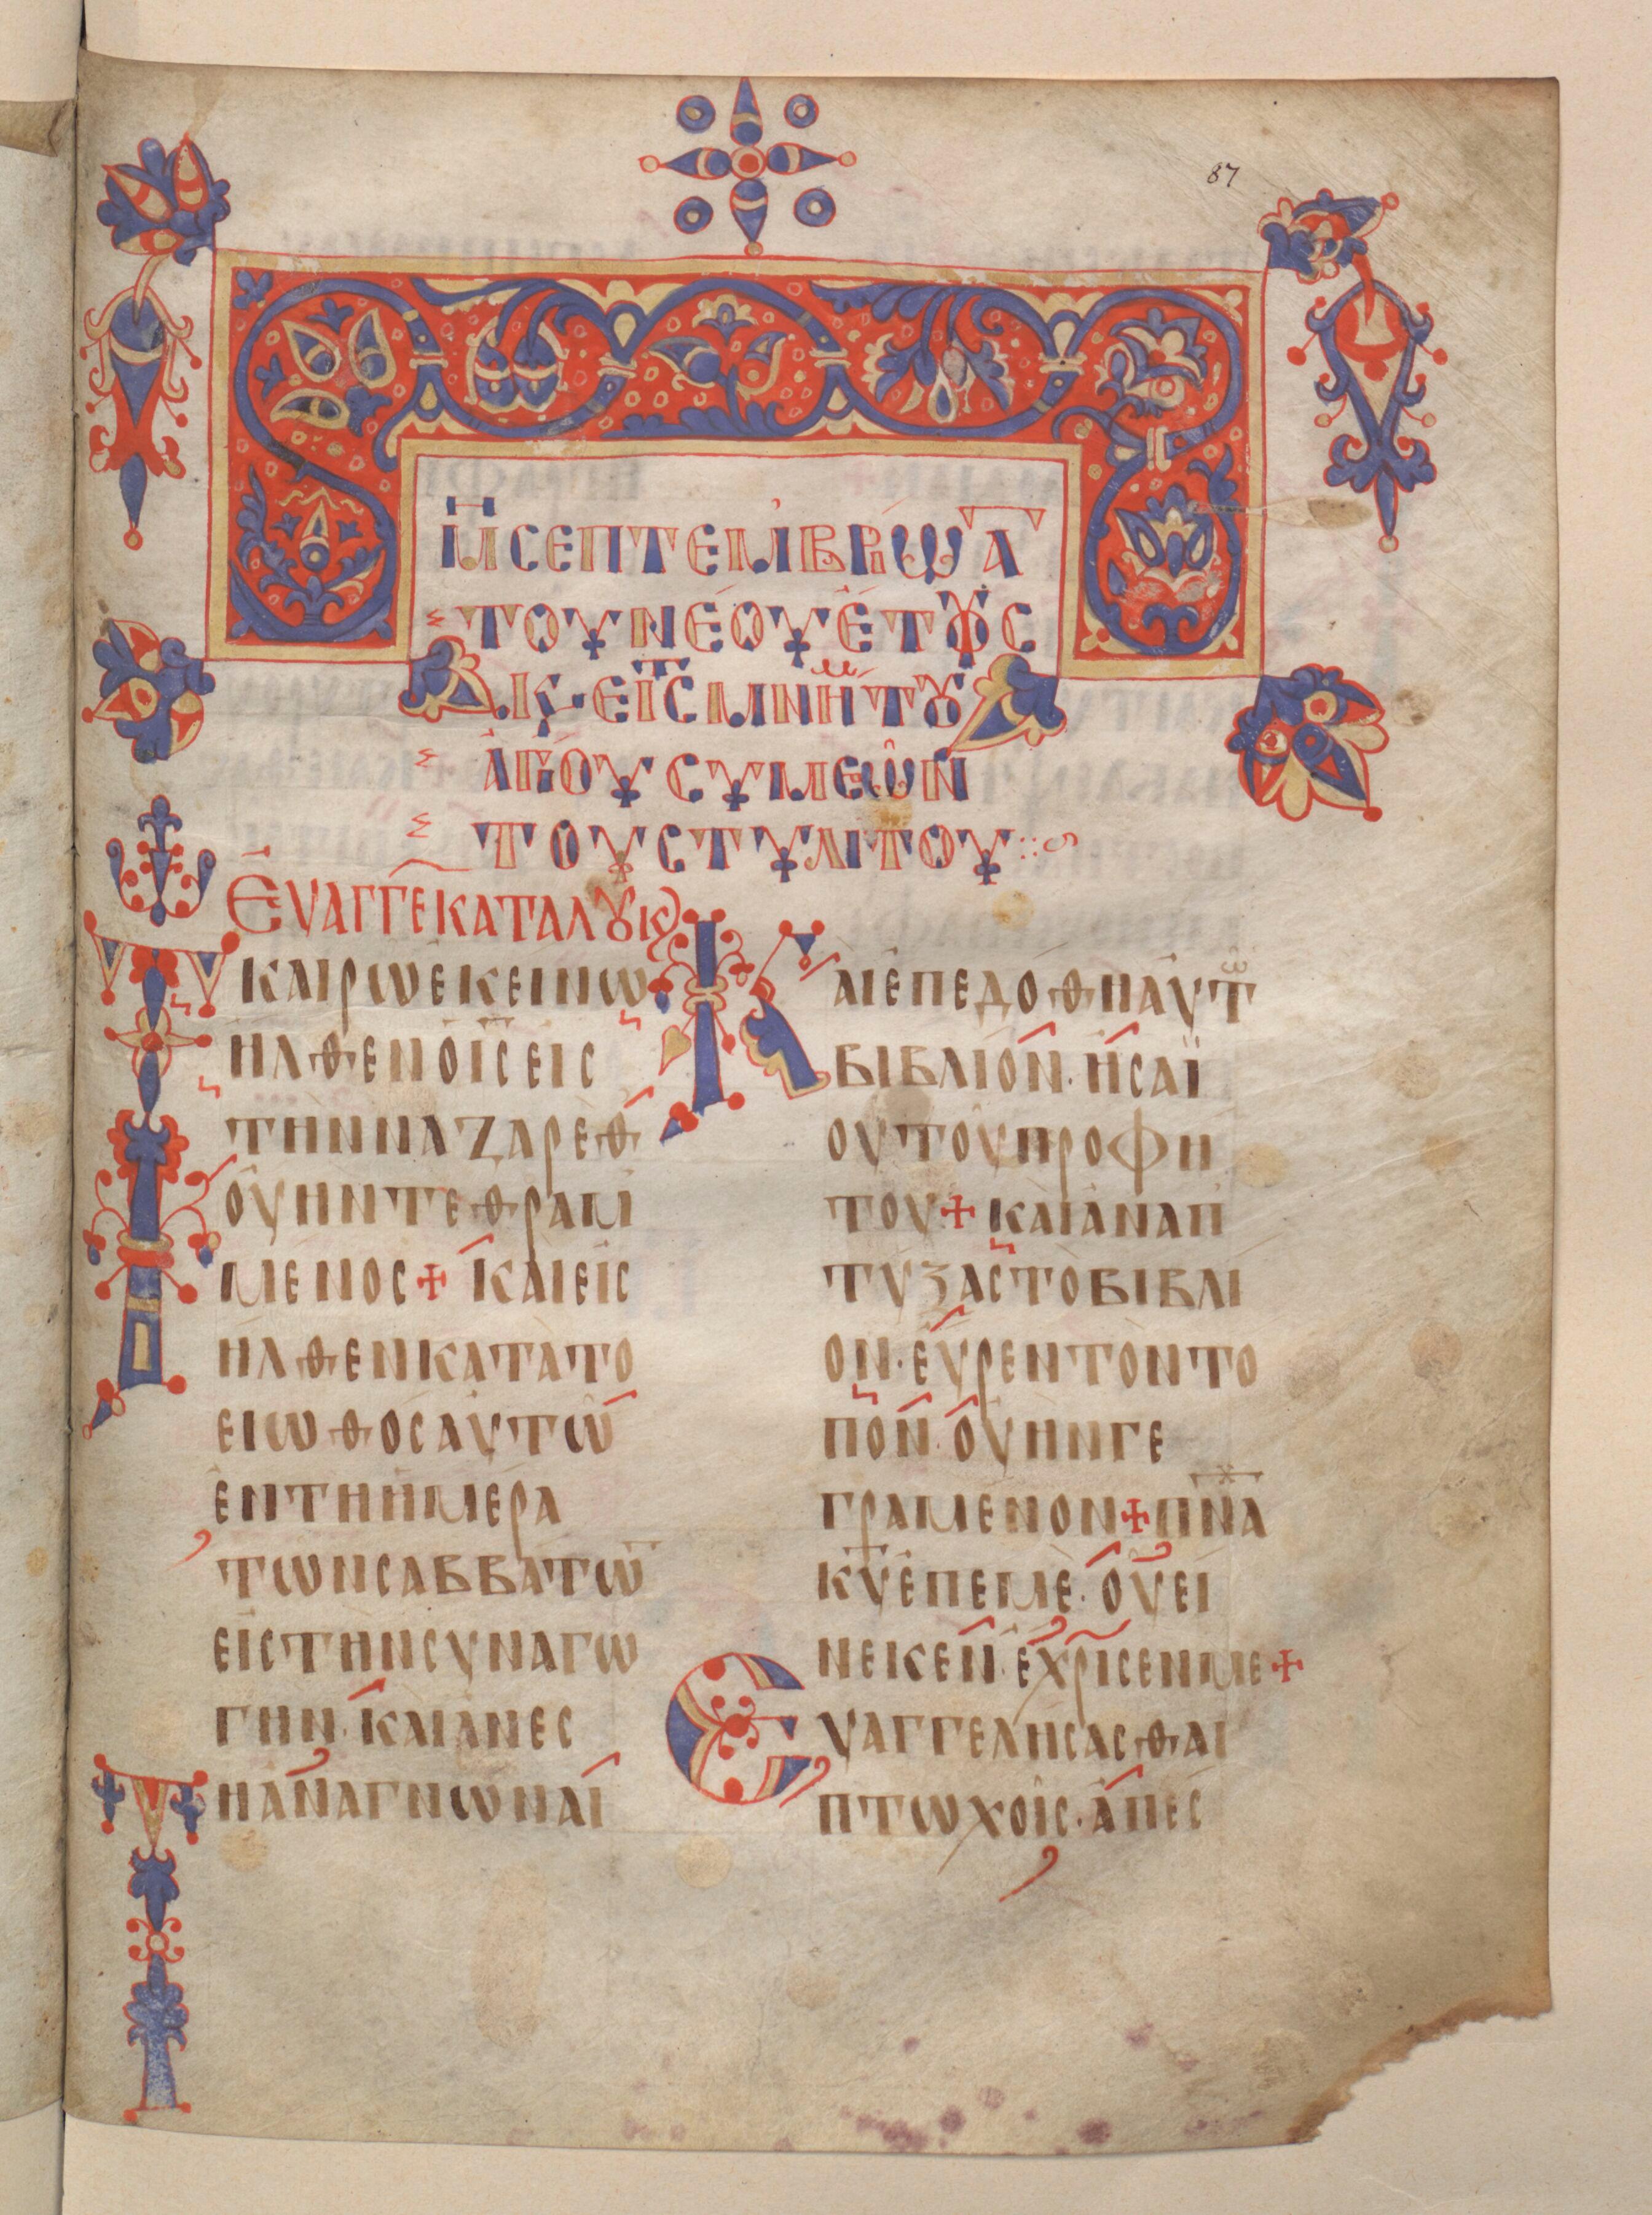 87
ΜΗ ΣΕΠΤΕΜΒΡΙΩ Α
ΤΟΥ ΝΕΟΥ ΕΤΟΥΣ
Κ· ΕΙΣ Τ ΜΝΗΜ ΤΟΥ
ΑΓΙΟΥ ΣΥΜΕΩΝ
ΤΟΥ ΣΤΥΛΙΤΟΥ
ΕΥΑΓΓΕ ΚΑΤΑ ΛΟΥΚ
Τω
ΚΑΙΡωΕΚΕΙΝω
ΗΛΘΕΝΟΙΣΕΙΣ
ΤΗΝΝΑΖΑΡΕΘ
ΟΥΗΝΤΕΘΡΑΜ
ΜΕΝΟΣ+ ΚΑΙΕΙΣ
ΗΛΘΕΝΚΑΤΑΤΟ
ΕΙωΘΟΣΑΥΤω
ΕΝΤΗΗΜΕΡΑ
ΤωΝΣΑΒΒΑΤω
ΕΙΣΤΗΝΣΥΝΑΓω
ΓΗΝ· ΚΑΙΑΝΕΣ
ΤΗΑΝΑΓΝωΝΑΙ
ΚΑΙΕΠΕΔΟΘΗΑΥΤω
ΒΙΒΛΙΟΝ· ΗΣΑΪ
ΟΥΤΟΥΠΡΟΦΗ
ΤΟΥ+ ΚΑΙΑΝΑΠ
ΤΥΞΑΣΤΟΒΙΒΛΙ
ΟΝ· ΕΥΡΕΝΤΟΝΤΟ
ΠΟΝ· ΟΥΗΝΓΕ
ΓΡΑΜΕΝΟΝ+ΠΝΑ
ΚΥΕΠΕΜΕ· ΟΥΕΙ
ΝΕΚΕΝ· ΕΧΡΙΣΕΝΜΕ+
ΕΥΑΓΓΕΛΗΣΑΣΘΑΙ
ΠΤωΧΟΙΣ· ΑΠΕΣ